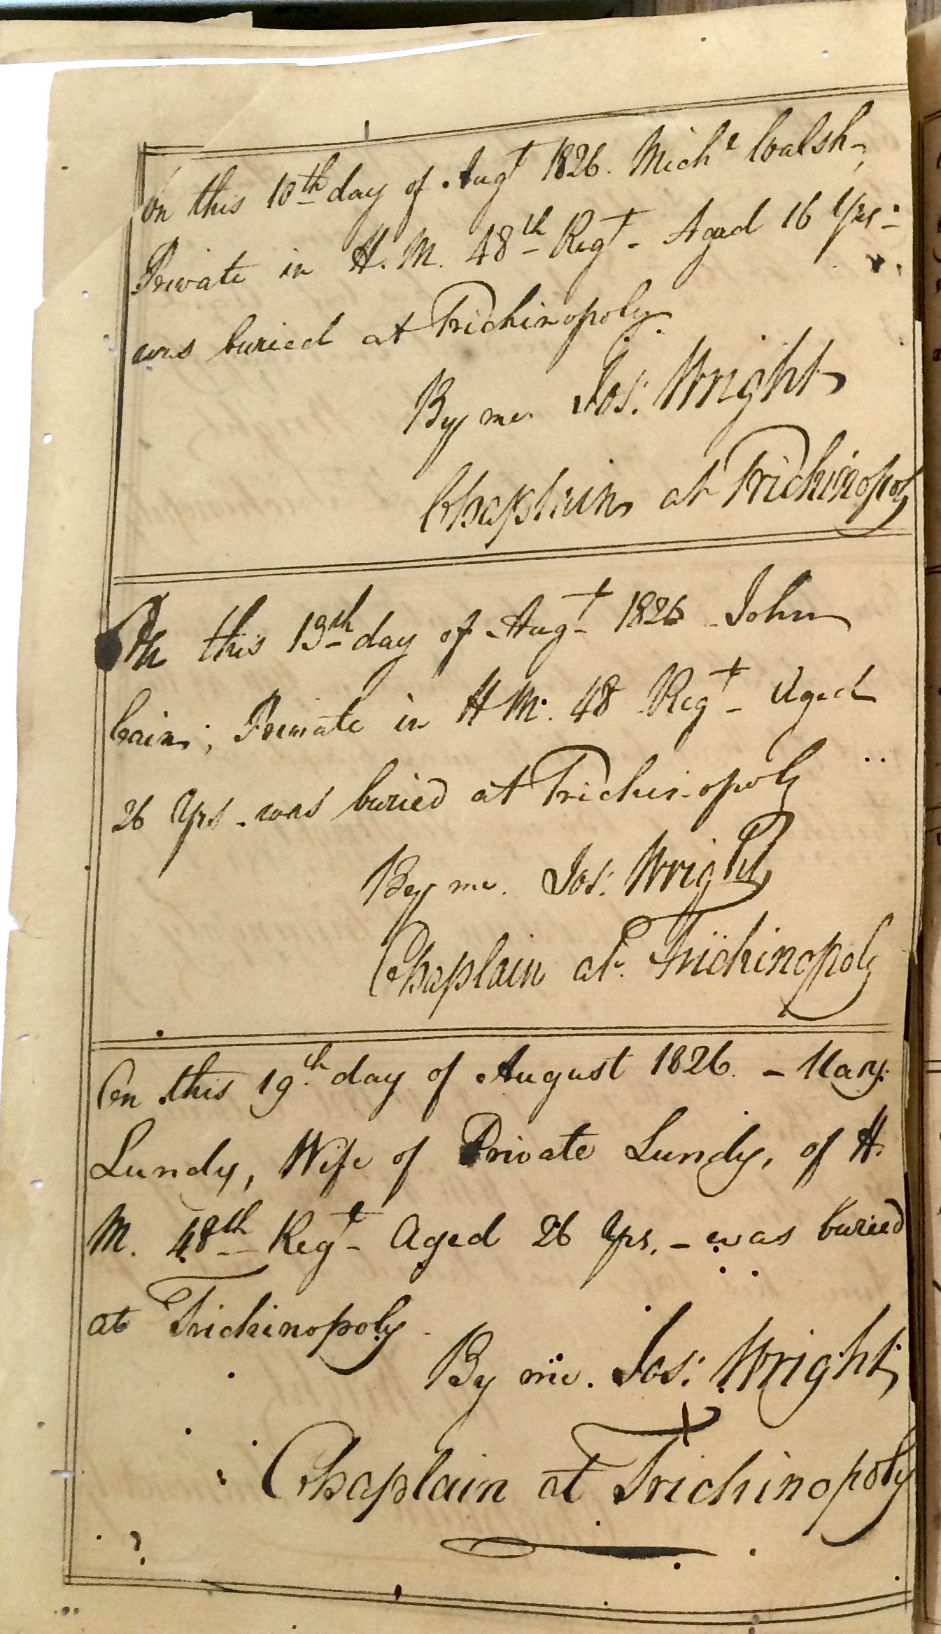 On this 10th day of Augt 1826. Michl Walsh,
Private in H. M. 48th Regt - Aged 16 Yrs -
was buried at Trichinopoly
By me Jos: Wright
Chaplain at Trichinopoly
On this 13th day of Augt 1826 - John
Cain; Private in H M. 48 Regt - Aged
26 Yrs - was buried at Trichinopoly
By me. Jos: Wright
Chaplain at Trichinopoly
On this 19th day of August 1826. - Mary
Lundy, Wife of Private Lundy, of H.
M. 48th Regt - Aged 26 Yrs. - was buried
at Trichinopoly
By me. Jos: Wright
Chaplain at Trichinopoly